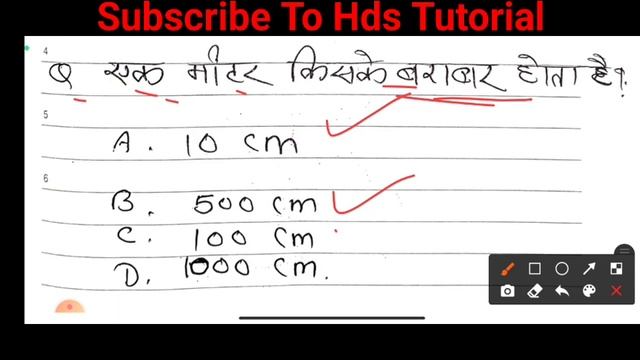 Subscribe To Hds Tutorial
4
Q एक मीटर किसके बराबार होता है?
5
A. 10 cm
6
B. 500 cm
C. 100 cm
D. 1000 cm.